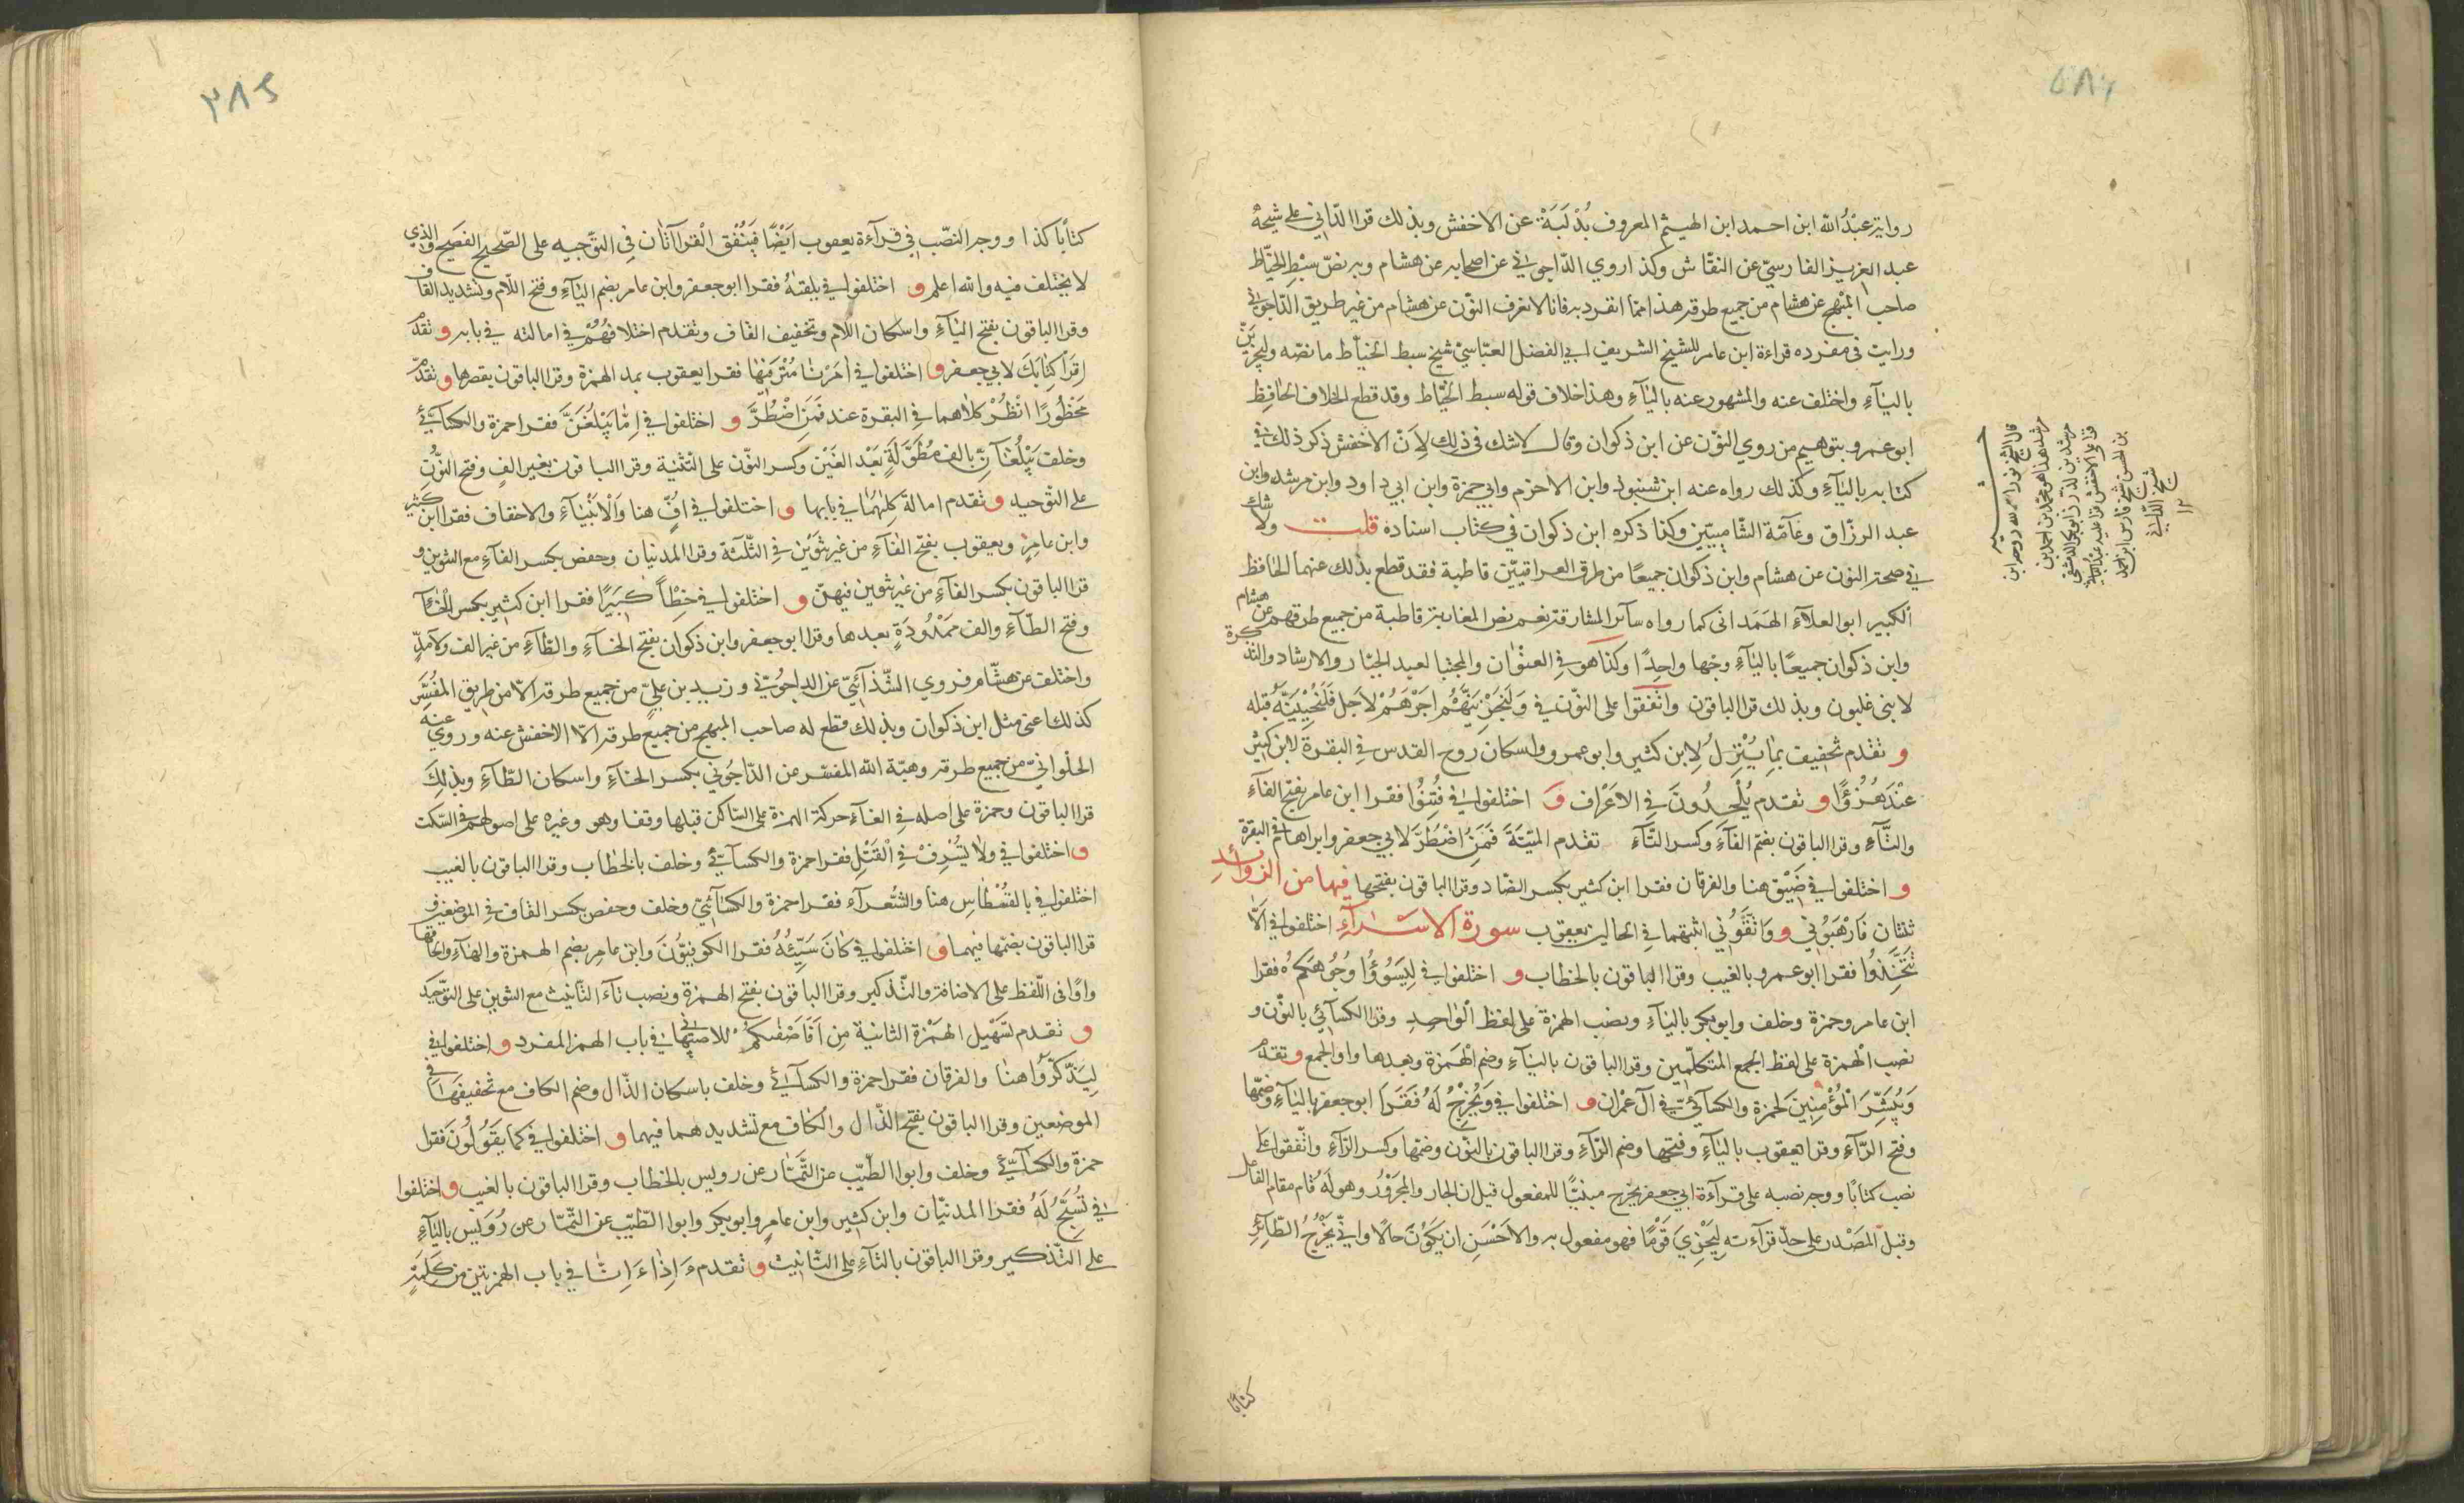 رواية عبْدُ الله ابن احمد ابن الهيثم المعروف بُدْلَبَة عن الاخفش وبذلك قرا الدّاني على شيخه
عبد العزيز الفارسيّ عن النقّاش وكذا روي الدّاجوني عن اصحابه عن هشام وبه نصّ سبْط الخيّاط
صاحب المُبْهج عن هشام من جميع طرقه هذا ممّا انفرد به فانا لا نعرف النّون عن هشام من غير طريق الدّاجوني
ورايت في مفرده قراءة ابن عامر للشيخ الشريف ابي الفضل العبّاسيّ شيخ سبط الخيّاط ما نصّه وليجزينّ
بالياء واختلف عنه والمشهور عنه بالياء وهذا خلاف قوله سبط الخيّاط وقد قطع الخلاف الحافظ
ابو عمرو بتوهيم من روي النّون عن ابن ذكوان وقال لاشك في ذلك لِاَنّ الاخفش ذكر ذلك في
كتابه بالياء وكذلك رواه عنه ابن شنبوذ وابن الاخرم وابي حمزة وابن ابي داود وابن مرشد وابن
عبد الرزّاق وعامّة الشّاميّين وكذا ذكره ابن ذكوان في كتاب اسناده قلت ولا شك
في صحة النون عن هشام وابن ذكوان جميعًا من طرق العراقيّين قاطبة فقد قطع بذلك عنهما الحافظ
الكبير ابو العلاء الهَمَداني كما رواه سآئر المشارقة نعم نص المغاربة قاطبة من جميع طرقهم عن هشام
وابن ذكوان جميعًا بالياء وجها واحِدًا وكذا هو في العنْوان والمجتبا لعبد الجبّار والارشاد والتذكرة
لابني غلبون وبذلك قرا الباقون واتّفقوا على النّون في وَلَنَجْزِيَنَّهُمْ اَجْرَهُمْ لاجل فَلَنُحْيِيَنَّهُ قبله
و تقدم تخفيف بِما يُنْزِلُ لِابن كثير وابو عمرو واسكان روح القدس في البقرة لابن كثير
عِنْدَ هُزُؤًا و تقدم يُلْحِدُونَ في الاعْراف و اختلفوا في فُتِنُوا فقرا ابن عامر بفتح الفآء
والتّآء وقرا الباقون بضمّ الفآء وكسر التّآء تقدم الميّتَةَ فَمَنُ اضْطُرَّ لابي جعفر وابراهام في البقرة
و اختلفوا في ضَيْق هنا والفرقان فقرا ابن كثير بكسر الضّاد وقرا الباقون بفتحها فيها من الزوائد
ثنتان فَارْهَبُوني و وَاتَّقَوُني اثبتهما في الحالين يعقوب سورة الاسْرآءِ اختلفوا في اَلَّا
تَتَّخِذُوا فقرا ابو عمرو بالغيب وقرا الباقون بالخطاب و اختلفوا في لِيَسُوؤُا وُجُوهَكُم فقرا
ابن عامر وحمزة وخلف وابو بكر بالياء ونصب الهمزة على لفظ الْواحِدِ وقرا الكسآئي بالنّون و
نصب الْهمزة على لفظ الجمع المتكلّمين وقرا الباقون بالياء وضم الْهَمزة وبعدها واو الجمع و تقدّم
وَيُبَشِّرَ الْمُؤْمِنِينَ لحمزة والكسآئيّ في آل عمْران و اختلفوا في وَنُخْرِجُ لَهُ فَقَرَا ابو جعفر بالياء وضمّها
وفتح الرّآءِ وقرا يعقوب بالياء وفتحها وضم الرّآءِ وقرا الباقون بالنّون وضمّها وكسر الرّآءِ واتّفقوا على
نصب كتابًا ووجه نصبه على قرآءة ابي جعفر يخرج مبنيًّا للمفعول قيل ان الجار والمجرْوُر وهو له قام مقام الفاعل
وقيل المَصْدر على حدّ قرآءته لِيَجْزِيَ قَوْمًا فهو مفعول به والاحْسَن ان يكوْن حالًا وايْ يَخْرُجُ الطّآئِر
كتابًا
قال الشيخ نور الله
مرشد هذا هو محمد بن احمد بن
مرشد بن الدّمشقي
شيخ الدّاني
١٢
كتابًا كذا ووجه النصّب في قرآءة يعقوب ايْضًا فيَتْفُق الْقرآاتان في التوّجيه على الصّحيح الفصيح والذي
لا يختلف فيه والله اعلم و اختلفوا في يلقيهُ فقرا ابو جعفر وابن عامر بضم الياء وفتح اللام وتشديد القاف
وقرا الباقون بفتح الياء واسكان اللام وتخفيف القاف وتقدم اختلافُهُمْ في امالته في بابه و تقدّم
اِقرَاْ كِتَابَكَ لابي جعفر و اختلفوا في اَمَرْنا مُتْرَفيْها فقرا يعقوب بمد الهمزة وقرا الباقون بقصرها و تقدّم
مَحْظُورًا انْظُرْ كلاهما في البقرة عند فَمَنِ اضْطُرَّ و اختلفوا في اِمّا يَبْلُغَنَّ فقرا حمزة والكسآئيّ
وخلف يَبْلُغَانِّ بالف مُطَوّلَةٍ بَعْد الغَيْن وكسر النّون على التّثنية وقرا الباقون بغير الفٍ وفتح النّون
على التوّحيد و تقدم امالة كِليْهُما في بابها و اختلفوا في اُفٍّ هنا وَالْاَنْبِيَآءِ والاحقاف فقرا ابن كثير
وابن عامِرٍ ويعقوب بفتح الفآءِ من غير تنوين في الثّلثة وقرا المدنيان وحفص بكسر الفآءِ مع التنوين و
قرا الباقون بكسر الفآءِ من غير تنوين فيهنّ و اختلفوا في خِطْاً كَبيرًا فقرا ابن كثير بكسر الْخآءِ
وفتح الطّآءِ والف مَمْدُودَةٍ بعدها وقرا ابو جعفر وابن ذكوان بفتح الخآءِ والطآءِ من غير الف ولا مدٍّ
واختلف عن هشام فروي الشّذآئيّ عن الداجُونيّ وزيد بن عليّ من جميع طرقه الّا من طريق المُفَسِّر
كذلك اعني مثل ابن ذكوان وبذلك قطع له صاحب المبهج من جميع طرقه الّا الاخفش عنه وروي عنه
الحلْوانيّ من جميع طرقه وهبة الله المفسّر عن الدّاجُوني بكسر الخآءِ واسكان الطآءِ وبذلِكَ
قرا الباقون وحمزة على اصله في القآء حركة الهمزة على السّاكن قبلها وقفا وهو وغيره على اصولهم في السّكت
و اختلفوا في ولا يُسْرِفْ في الْقَتْلِ فقرا حمزة والكسآئيّ وخلف بالخطاب وقرا الباقون بالغيب
اختلفوا في بالقُسْطاسِ هنا والشّعرآء فقرا حمزة والكسآئيّ وخلف وحفص بكسر القاف في الموضعين و
قرا الباقون بضمّها فيهما و اختلفوا في كانَ سَيّئُهُ فقرا الكوفيّوُنَ وابن عامِر بضم الهمزة والهآءِ والحاقها
واوًا في اللّفظ على الاضافة والتّذكير وقرا الباقون بفتح الهمزة ونصب تآء التّانيث مع التنوين على التوّحيد
و تقدم تسهْيل الهمْزة الثانية مِن اَفَاَصْفٰىكُمْ للاصبَهاني في باب الهمز المفرد و اختلفوا في
لِيَذّكّرْوُا هنا والفرقان فقرا حمزة والكسآئيّ وخلف باسكان الذّال وضم الكاف مع تخفيفها في
الموضعين وقرا الباقون بفتح الذّال والكاف مع تشديدهما فيهما و اختلفوا في كما يَقوُلوُنَ فقرا
حمزة والكسآئيّ وخلف وابو الطّيّب عن التّمّار عن رويس بالخطاب وقرا الباقون بالغيب و اختلفوا
في تُسَبّحُ لَهُ فقرا المدنيّان وابن كثير وابن عامرٍ وابو بكر وابو الطّيّب عن التّمّار عن رُوَيْس بالياءِ
على التّذكير وقرا الباقون بالتآءِ على التّانيث و تقدم ءَاِذَا ءَاِنّا في باب الهمزتين من كلمةٍ